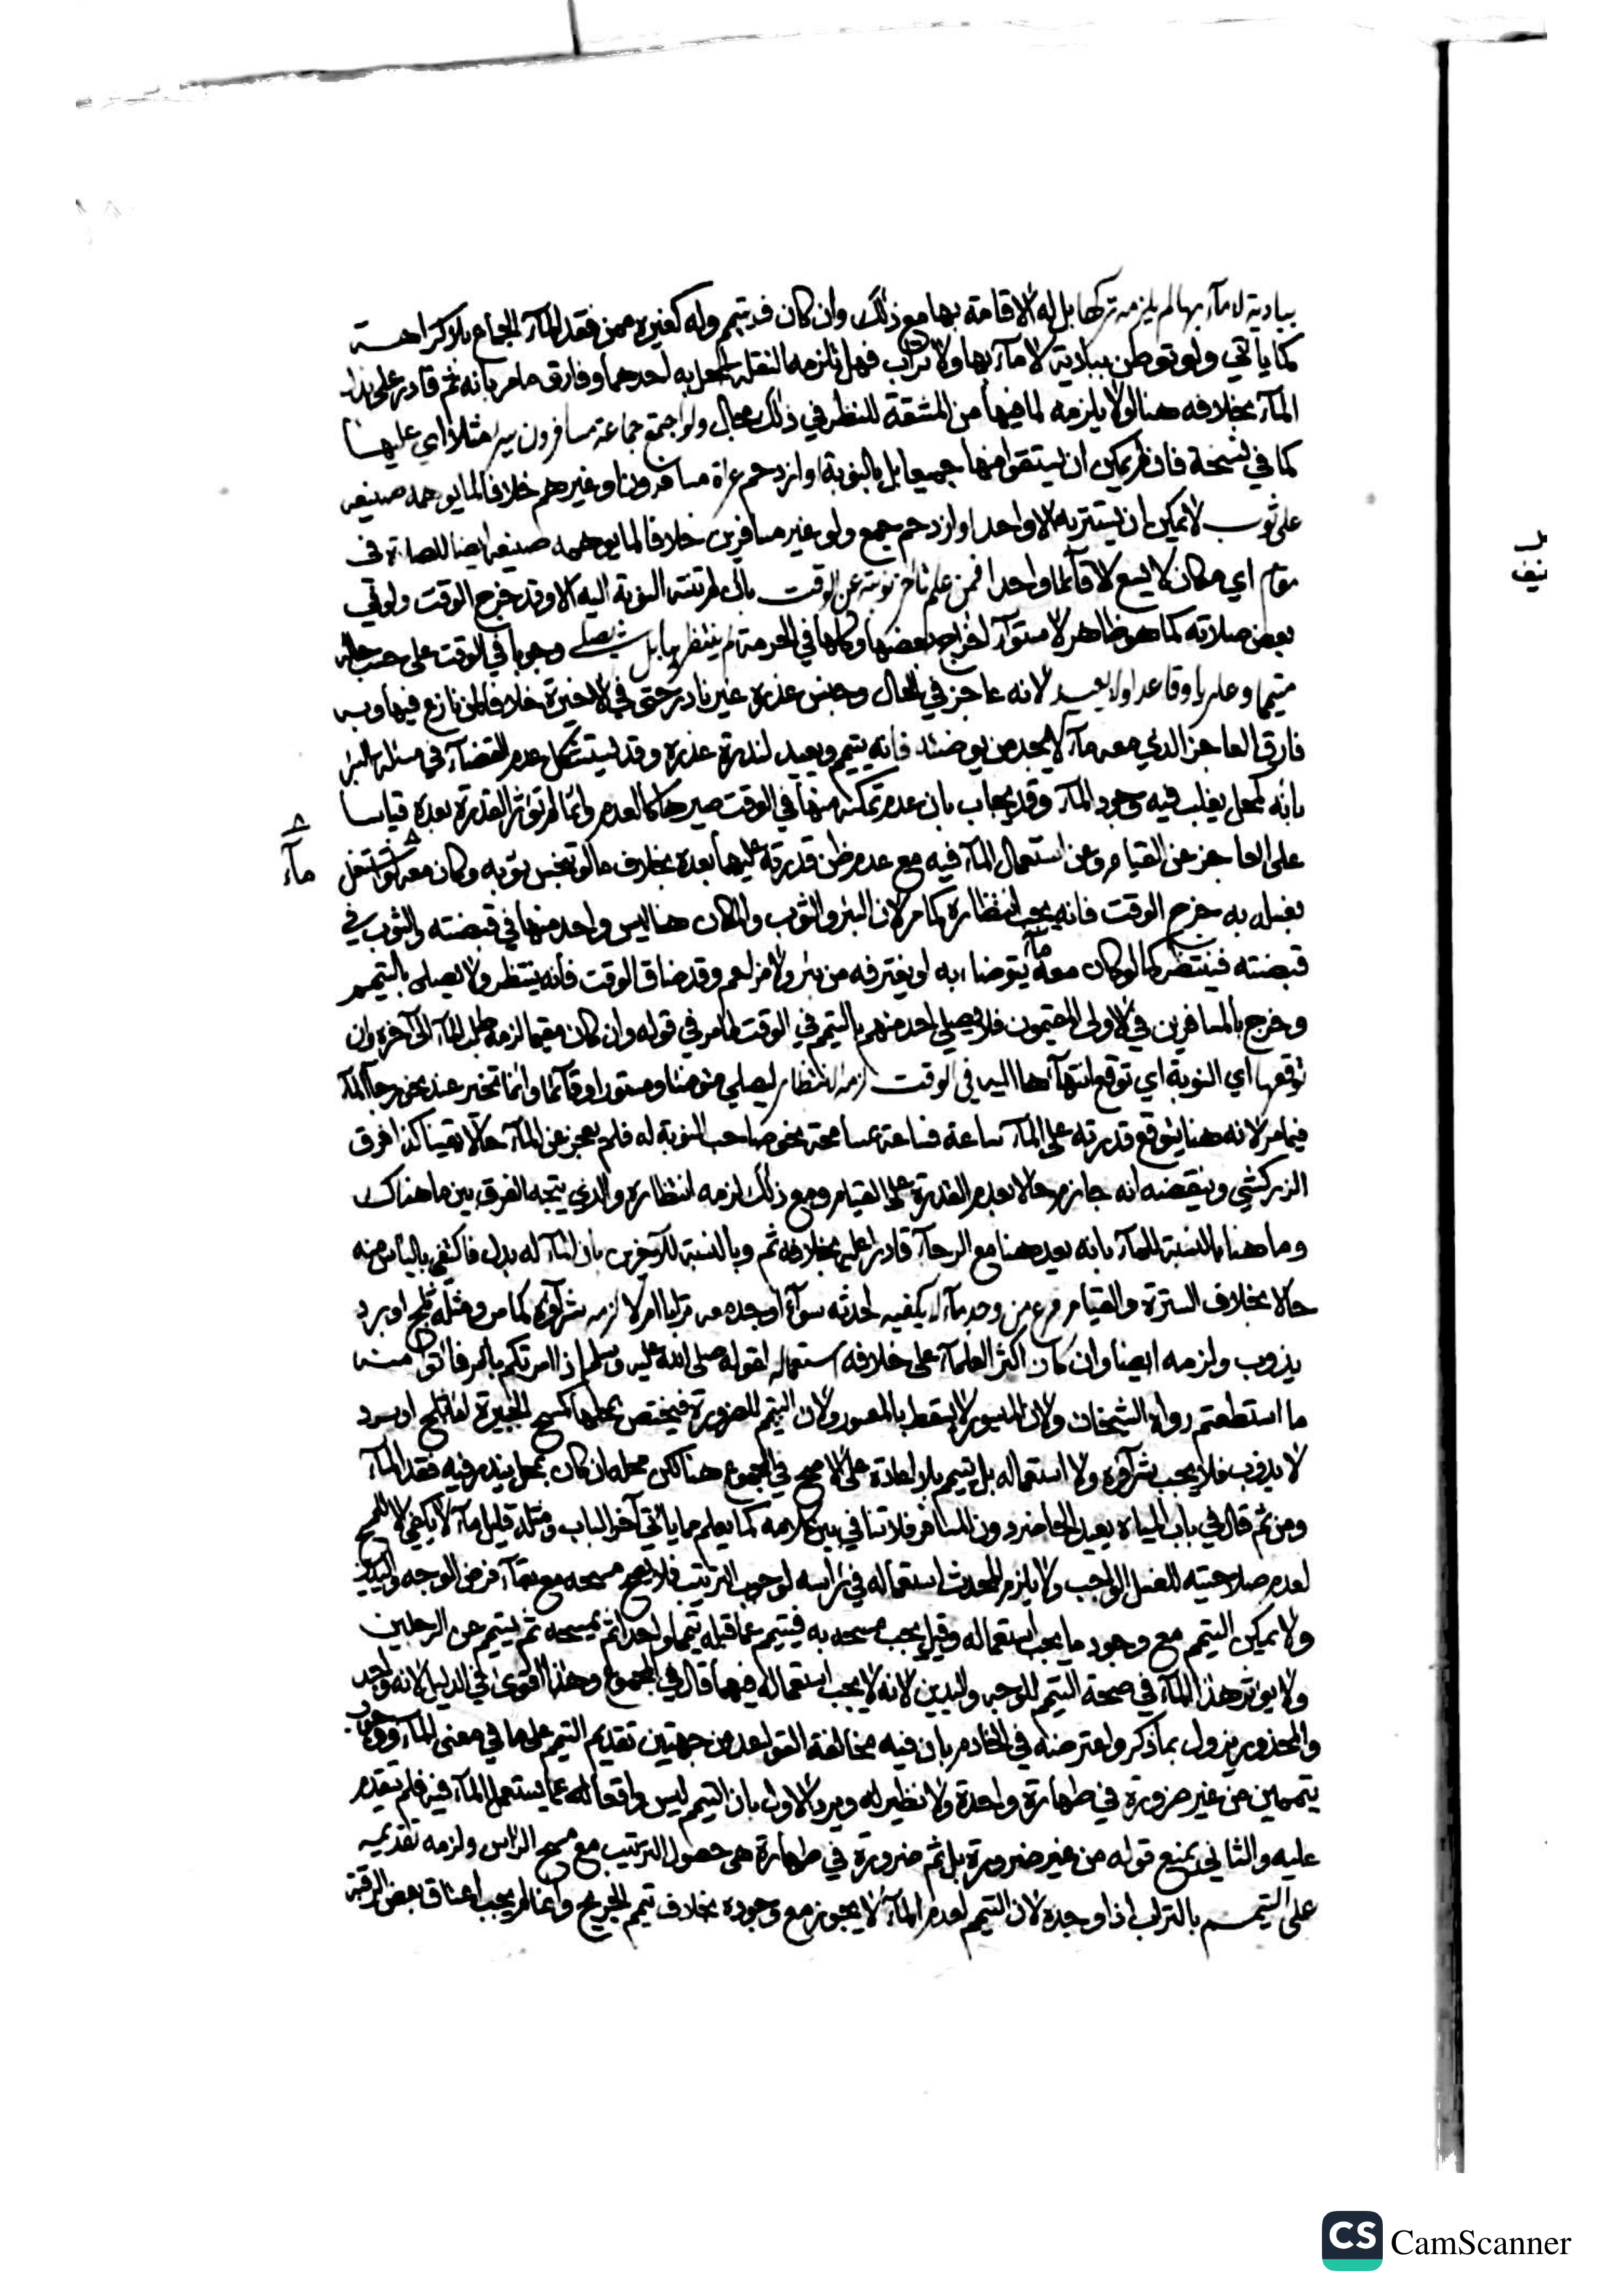 ببادية لا مآء بها لم يلزمه تركها بل له الاقامة بها مع ذلك وان كان قد تيمم وله كغيره ممن فقد المآء الجماع بلا كراهـــة
كما يأتي ولو توطن ببادية لا مآء بها ولا تراب فهل تلزمه النقلة لمحل به احدهما وفارق ما مر بأنه ثم قادر على بدل
المآء بخلافه هنا او لا يلزمه لما فيها من المشقة للنظر في ذلك مجال ولو اجتمع جماعة مسافرون ببئر مثلا اي عليها
كما في نسخة فان لم يمكن ان يستقوا منها جميعا بل بالنوبة او ازدحم عراة مسافرون او غيرهم خلافا لما يوهمه صنيعه
على ثوب لا يمكن ان يستتر به الا واحد او ازدحم جمع ولو غير مسافرين خلافا لما يوهمه صنيعه ايضا للصلاة في
مقام اي مكان لا يسع الا قآئما واحدا فمن علم تأخر نوبته عن الوقت بان لم تنته النوبة اليه الا وقد خرج الوقت ولو في
بعض صلاته كما هو ظاهر لاستوآء اخراج بعضها وكلها في الحرمة لم ينتظرها بل يصلي وجوبا في الوقت على حسب حاله
متيمما وعاريا وقاعدا ولا يعيد لانه عاجز في الحال وجنس عذره غير نادر حتى في الاخيرة خلافا لمن نازع فيها وبه
فارق العاجز الذي معه مآء لا يجد من يوضئه فانه يتيمم ويعيد لندرة عذره وقد يستشكل عدم القضآء في مسئلة البئر
بانه بمحل يغلب فيه وجود المآء وقد يجاب بان عدم تمكنه منها في الوقت صيرها كالعدم وانما لم تؤثر القدرة بعده قياسا
على العاجز عن القيام وعن استعمال المآء فيه مع عدم ظن قدرته عليهما بعده بخلاف ما لو تنجس ثوبه وكان معه لو اشتغل
مآء
بغسله به خرج الوقت فانه يجب انتظاره كما مر لان البئر والثوب والمكان هنا ليس واحد منها في قبضته والثوب في
قبضته فينتظر كما لو كان معه مآء يتوضا به او يغترفه من بئر ولا مزاحم وقد ضاق الوقت فأنه ينتظر ولا يصلي بالتيمم
وخرج بالمسافرين في الاولى المقيمون فلا يصلي احد منهم بالتيمم في الوقت لما مر في قوله وان كان مقيما لزمه طلب المآء الى آخره وان
توقعها اي النوبة اي توقع انتهآءها اليه في الوقت لزمه الانتظار ليصلي متوضئا ومستورا وقآئما وانما تخير عند نحو رجآء المآء
فيما مر لانه هنا يتوقع قدرته على المآء ساعة فساعة بمسامحة نحو صاحب النوبة له فلم يعجز عن المآء حالا يقينا كذا فرق
الزركشي وينقضه انه جازم حالا بعدم القدرة على القيام ومع ذلك لزمه انتظاره والذي يتجه الفرق بين ما هناك
وما هنا بالنسبة للمآء بانه يعد هنا مع الرجآء قادرا عليه بخلافه ثم وبالنسبة للآخرين بان المآء له بدل فاكتفي باليأس منه
حالا بخلاف السترة والقيام فرع من وجد مآء لا يكفيه لحدثه سوآء اوجد معه ترابا ام لا لزمه شرآؤه كما مر ومثله ثلج او برد
يذوب ولزمه ايضا وان كان اكثر العلمآء على خلافه استعماله لقوله صلى الله عليه وسلم اذا امرتكم بامر فأتوا منه
ما استطعتم رواه الشيخان ولان الميسور لا يسقط بالمعسور ولان التيمم للضرورة فيختص بمحلها كمسح الجبيرة اما ثلج او برد
لا يذوب فلا يجب شرآؤه ولا استعماله بل يتيمم بلا اعادة على الاصح في المجموع هنا لكن محله ان كان بمحل يندر فيه فقد المآء
ومن ثم قال في باب المياه يعيد الحاضر دون المسافر فلا تنافي بين كلامه كما يعلم مما يأتي آخر الباب ومثله قليل مآء لا يكفي الا للمسح
لعدم صلاحيته للغسل الواجب ولا يلزم المحدث استعماله في رأسه لوجوب الترتيب فلا يصح مسحه مع بقآء فرض الوجه واليدين
ولا يمكن التيمم مع وجود ما يجب استعماله وقيل يجب مسحه به فيتيمم عما قبله تيمما واحدا ثم يمسحه ثم يتيمم عن الرجلين
ولا يؤثر هذا المآء في صحة التيمم للوجه واليدين لانه لا يجب استعماله فيهما قال في المجموع وهذا اقوى في الدليل لانه واجد
والمحذور يزول بما ذكر واعترضه في الخادم بان فيه مخالفة القواعد من جهتين تقديم التيمم على ما في معنى المآء ووجوب
تيممين من غير ضرورة في طهارة واحدة ولا نظير له ويرد الاول بان التيمم ليس واقعا له عما يستعمل المآء فيه فلم يتقدم
عليه والثاني بمنع قوله من غير ضرورة بل ثم ضرورة في طهارة هي حصول الترتيب مع مسح الرأس ولزمه تقديمه
على التيمـــم بالتراب اذا وجده لان التيمم لعدم المآء لا يجوز مع وجوده بخلاف تيمم الجريح وانما لم يجب اعتاق بعض الرقبة
CS CamScanner